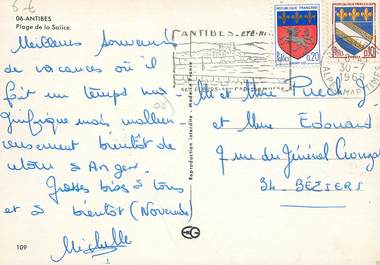 06-ANTIBES
Plage de la Salice.
Meilleurs souvenirs
de vacances où il
fait un temps ma
gnifique mais malheu-
reusement bientôt de
retour à Angers.
Grosses bises à tous
et à bientôt (Novembre)
Michelle
109
Reproduction interdite - Made in France
ANTIBES. ETÉ-HI
30-7
1968
REPUBLIQUE FRANÇAISE
0,20
REPUBLIQUE FRANÇAISE
M et Mme
et Mme Edouard
7 rue du Général
34. BÉZIERS